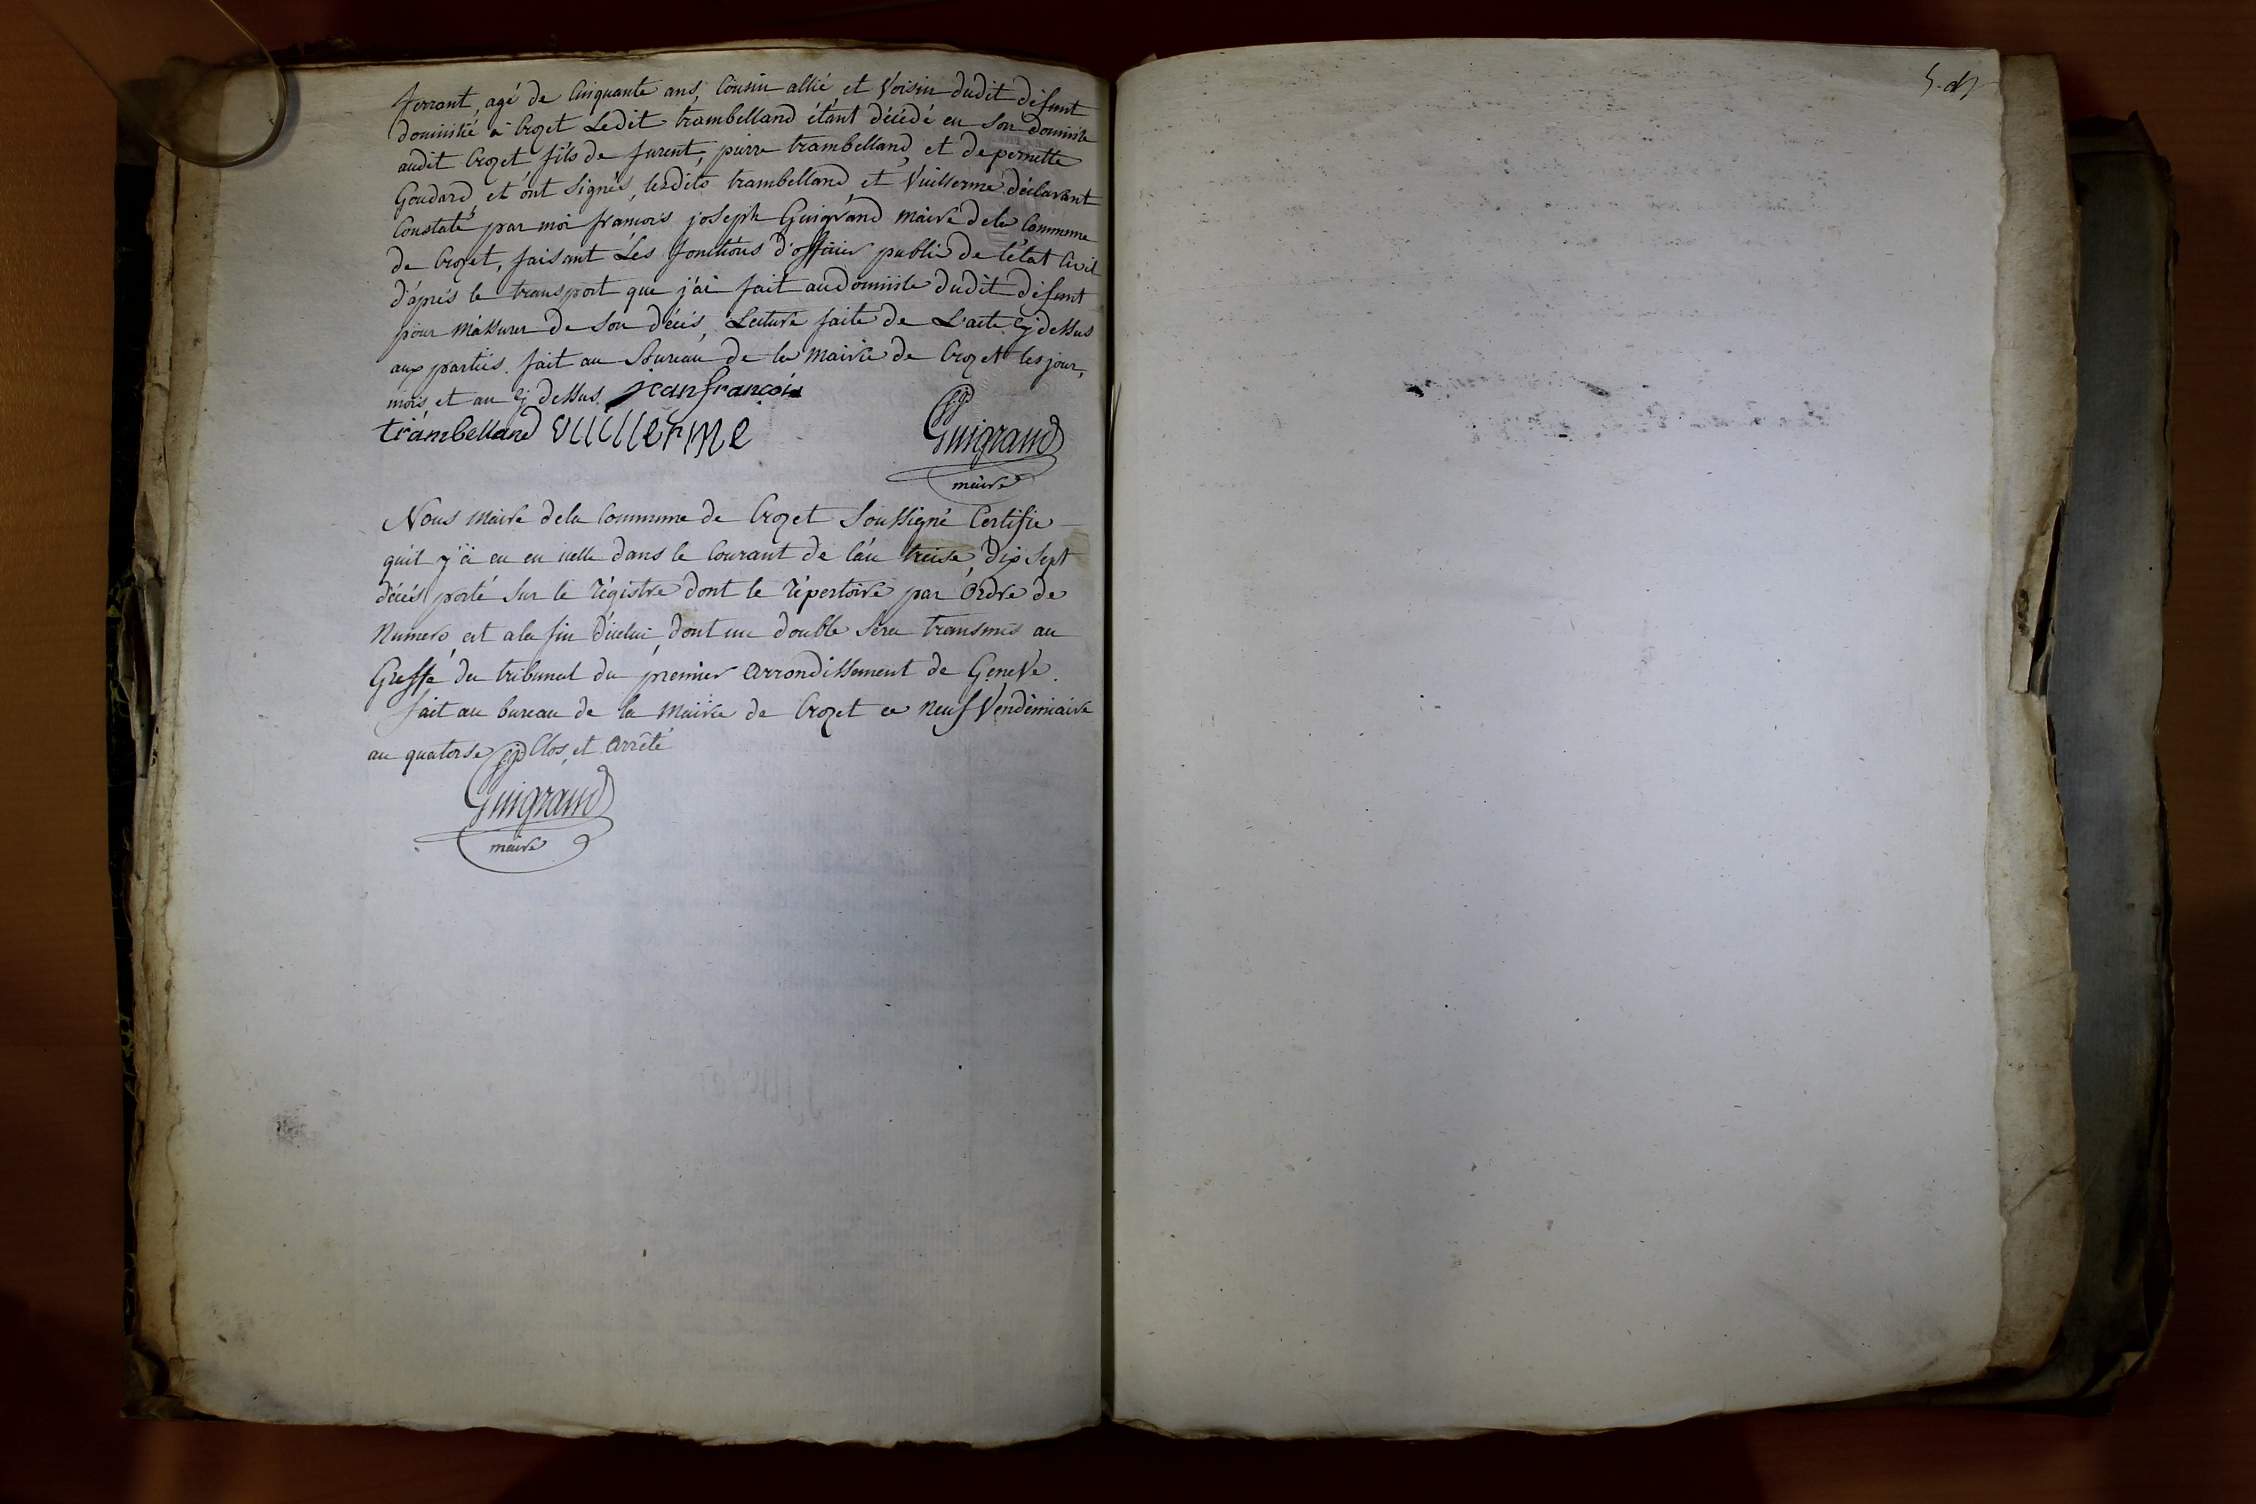 ferrant, agé de Cinquante ans, Cousin allié et Voisin dudit défunt
domicilié a Crozet Ledit trambelland étant décédé en Son domicile
audit Crozet fils de furent, pierre trambelland, et de pernette
Goudard, et ont Signés, lesdits trambelland, et Vuillerme déclarant
Constaté par moi francois joseph Guigrand Maire dela Commune
de Crozet, faisant Les fonctions d'officier public de létat Civil
d'aprés le transport que j'ai fait audomicile dudit défunt
pour M'assurer de Son décés, Lecture faite de L'acte Cy dessus
aux parties. fait au Bureau de la Mairie de Crozet les jour,
mois, et an Cy dessus. jean françois
trambelland vuillerme
Guigrand
maire
Nous Maire dela Commune de Crozet Soussigné Certifie
quil y'a eu en icelle dans le Courant de l'an treise, Dix Sept
décés porté Sur le régistre dont le répertoire par Ordre de
Numero, est a la fin d'icelui, dont un double Sera transmis au
Greffe du tribunal du premier Arrondissement de Geneve.
fait au bureau de la Mairie de Crozet ce Neuf Vendémiaire
an quatorse Clos, et Arrêté
Guigrand
maire